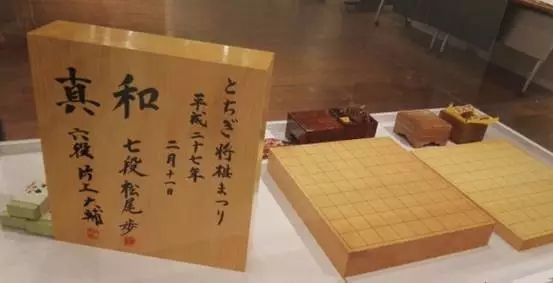 とちぎ将棋まつり
平成二十七年
二月十一日
和
七段 松尾 歩
真
六段 片上 大輔